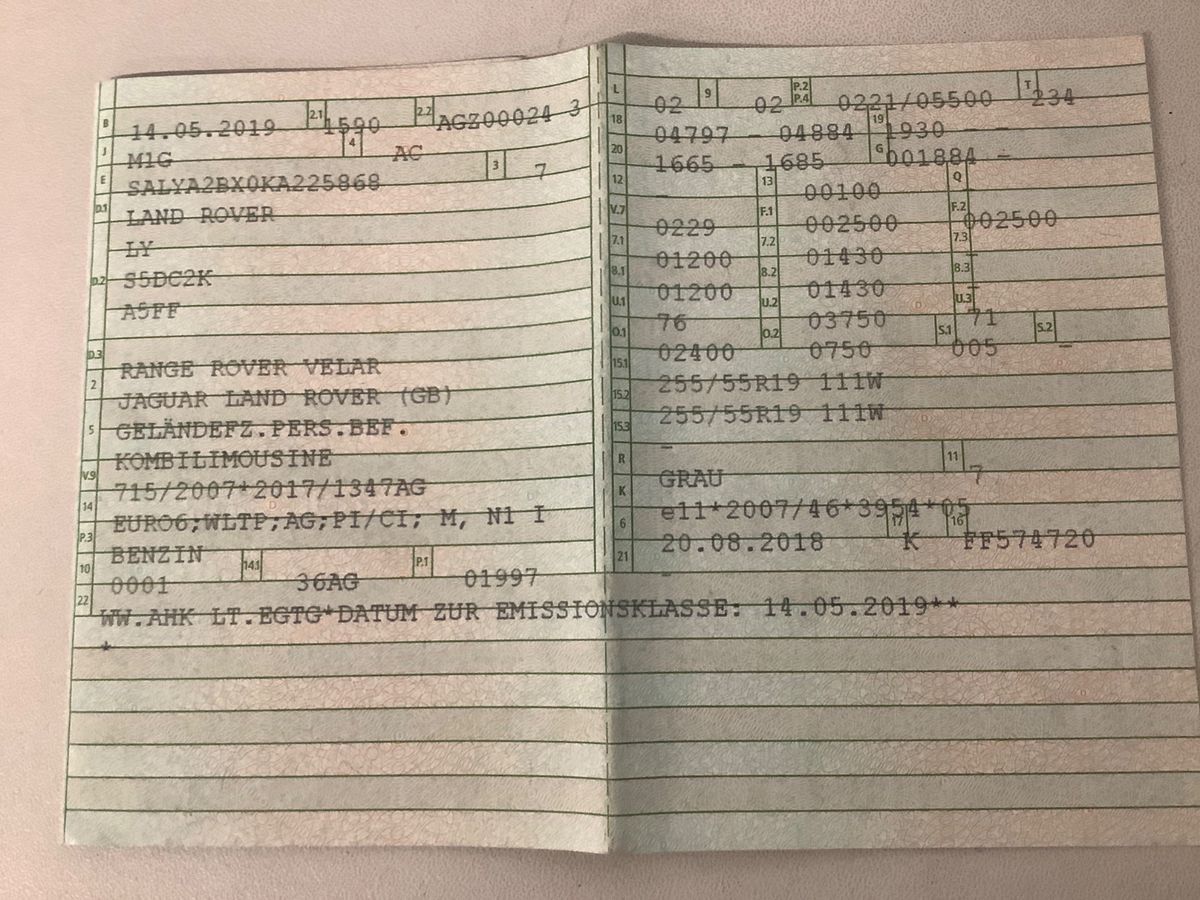 B 14.05.2019 2.1 1590 2.2 AGZ00024 3
J M1G 4 AC
E SALYA2BX0KA225868 3 7
D.1 LAND ROVER
LY
D.2 S5DC2K
A5FF
D.3 RANGE ROVER VELAR
2 JAGUAR LAND ROVER (GB)
5 GELÄNDEFZ.PERS.BEF.
KOMBILIMOUSINE
V.9 715/2007*2017/1347AG
14 EURO6;WLTP;AG;PI/CI; M, N1 I
P.3 BENZIN
10 0001 14.1 36AG P.1 01997
L 02 9 02 P.2 P.4 0221/05500 T 234
18 04797 - 04884 19 1930 - -
20 1665 - 1685 G 001884 -
12 - 13 00100 Q -
V.7 0229 F.1 002500 F.2 002500
7.1 01200 7.2 01430 7.3 -
8.1 01200 8.2 01430 8.3 -
U.1 76 U.2 03750 U.3 71
O.1 02400 O.2 0750 S.1 005 S.2 -
15.1 255/55R19 111W
15.2 255/55R19 111W
15.3 -
R GRAU 11 7
K e11*2007/46*3954*05
6 20.08.2018 17 K 16 FF574720
21 -
22 WW.AHK LT.EGTG*DATUM ZUR EMISSIONSKLASSE: 14.05.2019**
*